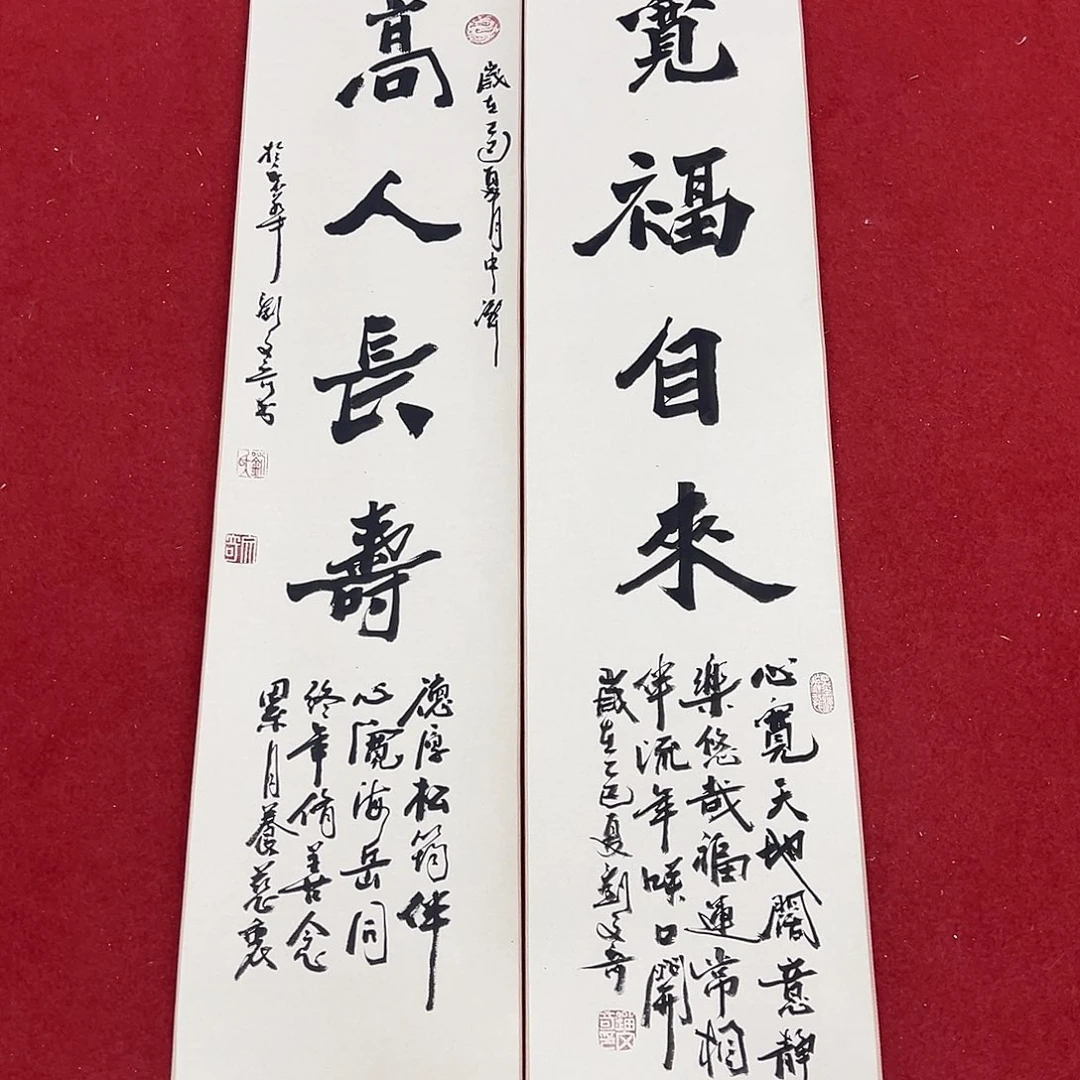 寬福自來
心寬天地闊意靜
樂悠哉福運常相
伴流年咲口開
歲在乙巳夏劉文奇
歲在乙巳夏月中澣
高人長壽
德厚松筠伴
心寬海岳同
終年脩善念
累月養慈衷
於京華劉文奇书